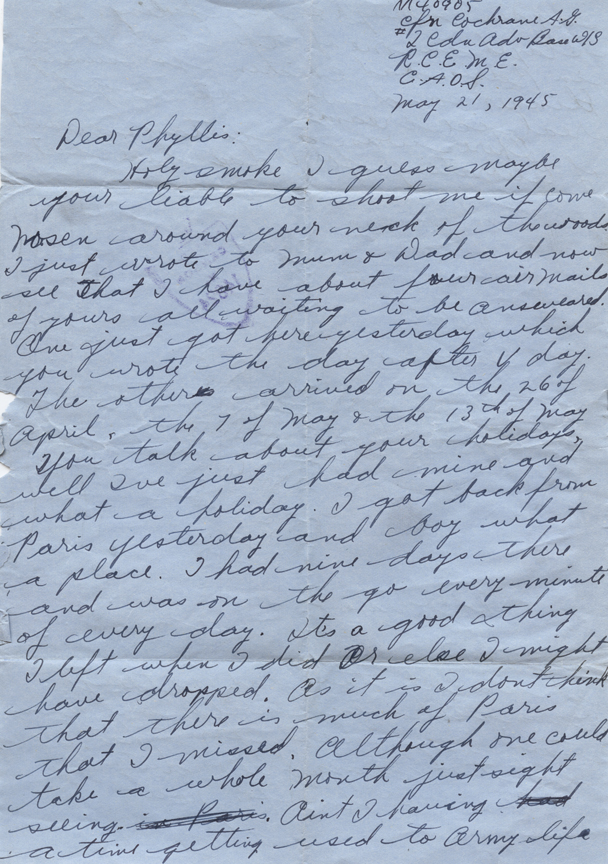 M40905
Cfn Cochrane A.G.
#2 Cdn Adv Base W/S
R.C.E.M.E.
C.A.O.S.
May 21, 1945
Dear Phyllis:
Holy smoke I guess maybe
your liable to shoot me if come
around your neck of the woods
I just wrote to Mum & Dad and now
see that I have about four air mails
of yours all waiting to be answeared.
One just got here yesterday which
you wrote the day after V day.
The others arrived on the 26 of
April, the 7 of May & the 13th of May
You talk about your holidays,
well I've just had mine and
what a holiday. I got back from
Paris yesterday and boy what
a place. I had nine days there
and was on the go every minute
of every day. Its a good thing
I left when I did or else I might
have dropped. As it is I dont think
that there is much of Paris
that I missed. Although one could
take a whole month just sight
seeing in Paris. Aint I having had
a time getting used to Army life